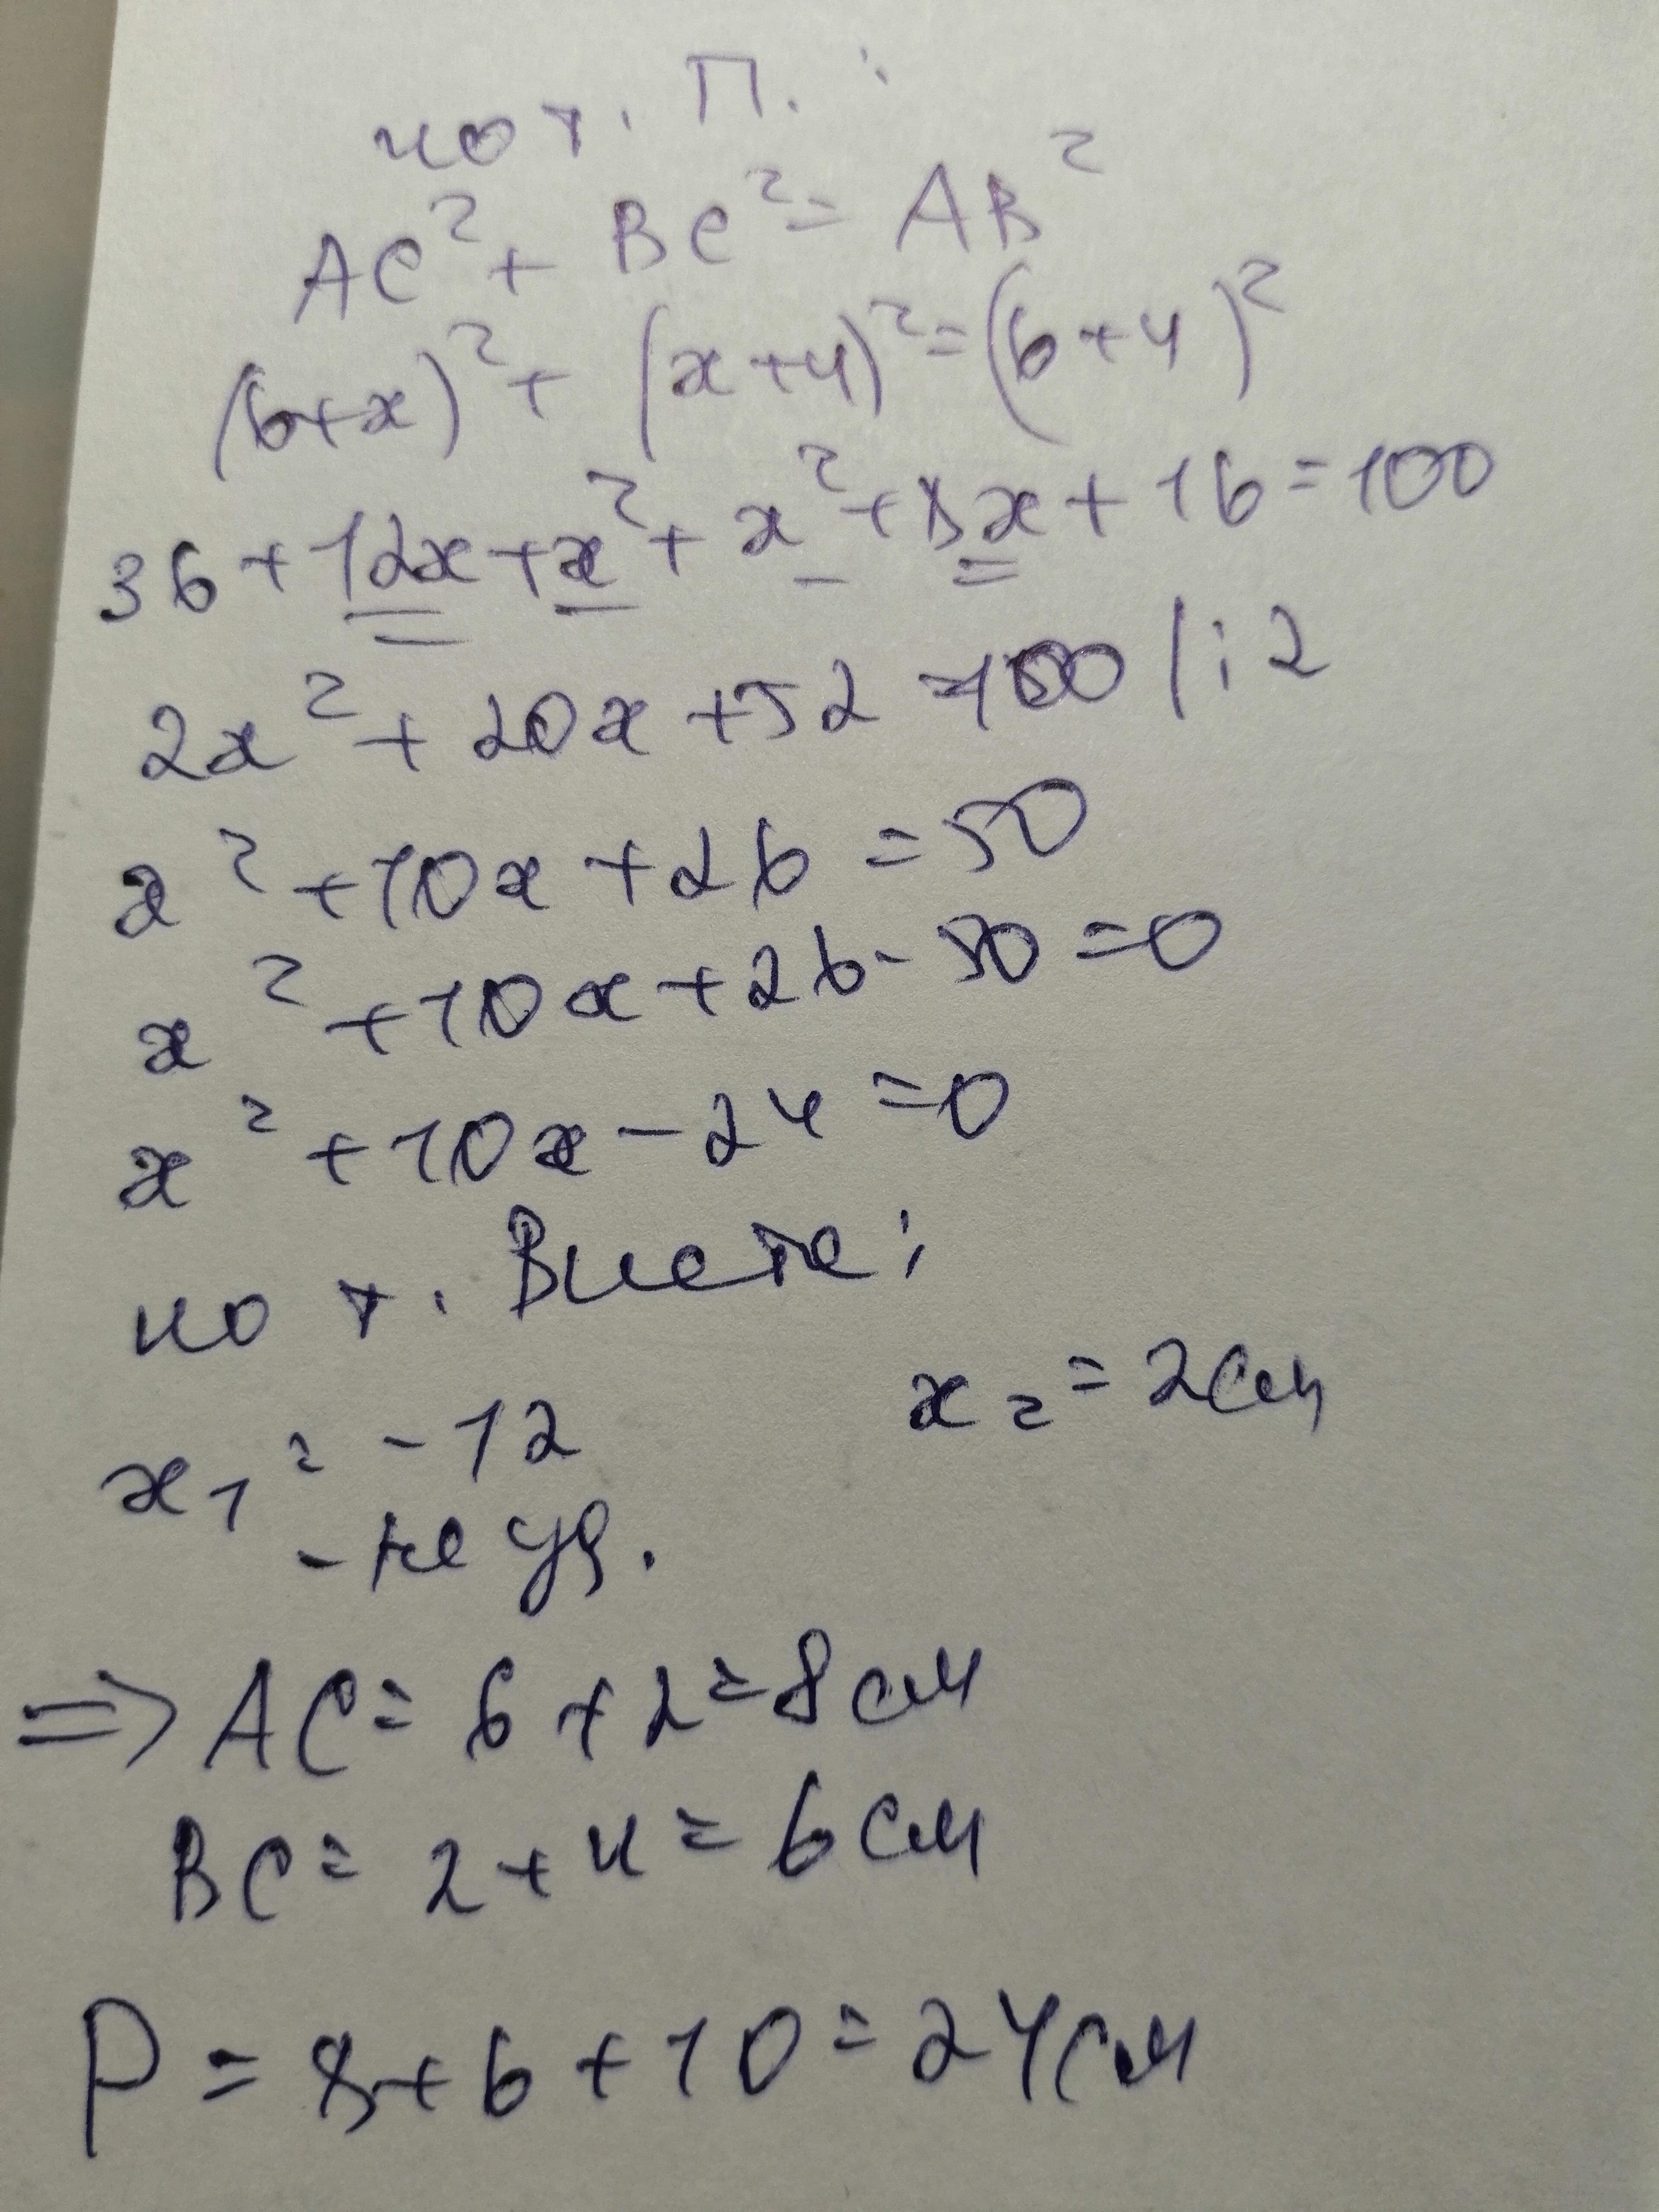 по т. П. :
AC² + BC² = AB²
(6+x)² + (x+4)² = (6+4)²
36 + 12x + x² + x² + 8x + 16 = 100
2x² + 20x + 52 = 100 | : 2
x² + 10x + 26 = 50
x² + 10x + 26 - 50 = 0
x² + 10x - 24 = 0
по т. Виета:
x₁ = -12 x₂ = 2см
- не уд.
=> AC = 6 + 2 = 8 см
BC = 2 + 4 = 6 см
P = 8 + 6 + 10 = 24 см